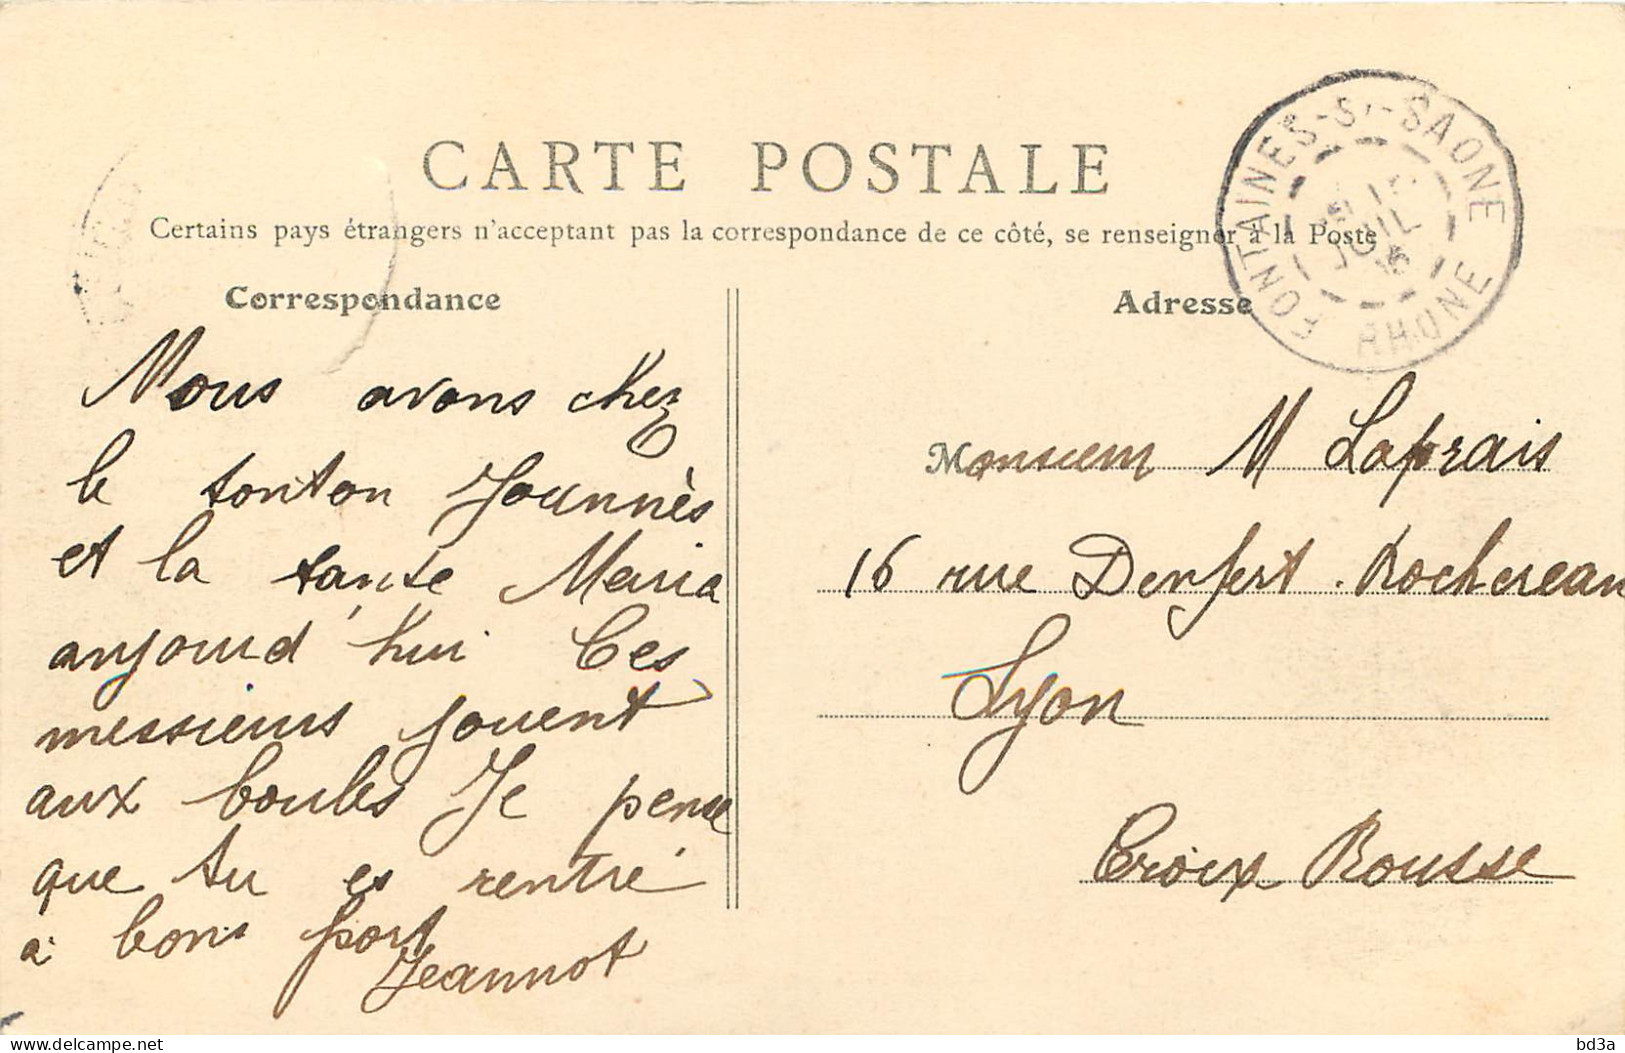 CARTE POSTALE
Certains pays étrangers n'acceptant pas la correspondance de ce côté, se renseigner à la Poste
Correspondance
Nous avons chez
le tonton Joannès
et la tante Maria
aujourd'hui Ces
messieurs jouent
aux boules Je pense
que tu es rentré
a bons port
Jeannot
Adresse
FONTAINES-S/-SAONE
JUIL
RHONE
Monsieur M Laprais
16 rue Denfert. Rochereau
Lyon
Croix Rousse
delcampe.net
bd3a